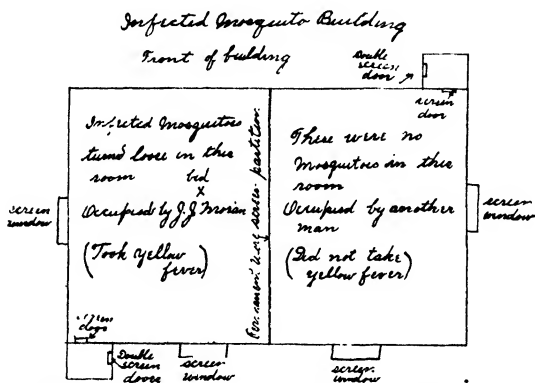 Infected Mosquito Building
Front of building
Double
screen
door
screen
door
Infected Mosquitoes
turned loose in this
room
bed
x
Occupied by J.J. Moran
(Took yellow
fever)
Permanent wire screen partition.
There were no
Mosquitoes in this
room
Occupied by another
man
(Did not take
yellow fever)
screen
window
screen
window
screen
doors
Double
screen
doors
screen
window
screen
window